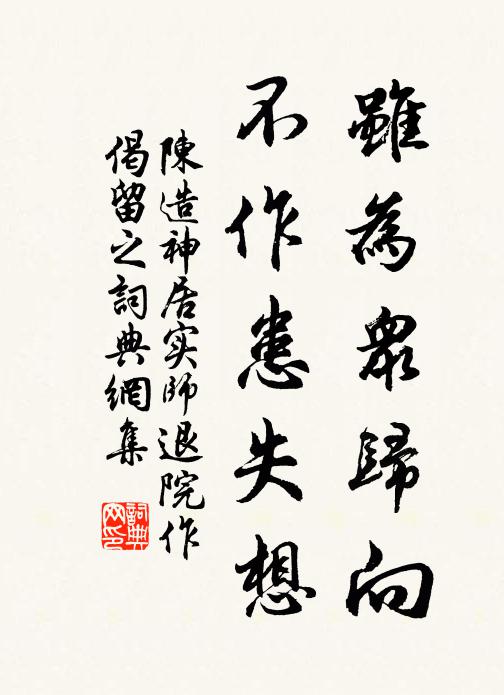 雖為衆歸向
不作患失想
陳造神居实師退院作
偈留之詞典網集
詞典
网印